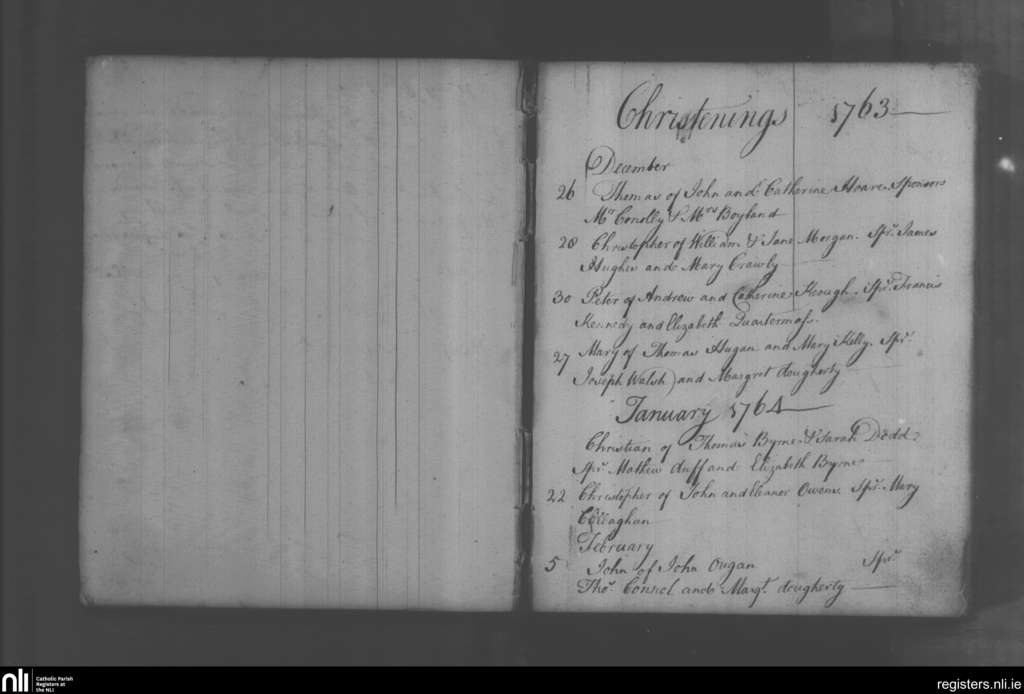 Christenings 1763
December
26 Thomas of John and Catherine Hoare Sponsors
Mr Conolly & Mrs Boyland
28 Christopher of William & Jane Morgan. Spr. James
Hughes and Mary Crawly
30 Peter of Andrew and Catherine Keough. Spr. Francis
Kennedy and Elizabeth Quartermass.
27 Mary of Thomas Hugan and Mary Kelly. Spr.
Joseph Walsh and Margret dougherty
January 1764
Christian of Thomas Byrne & Sarah Dodd
Spr. Mathew duff and Elizabeth Byrne
22 Christopher of John and Eleanor Owens Spr. Mary
Callaghan
February
5 John of John Ougan Spr.
Thos. and Margt. dougherty
nli Catholic Parish
Registers at
the NLI
registers.nli.ie